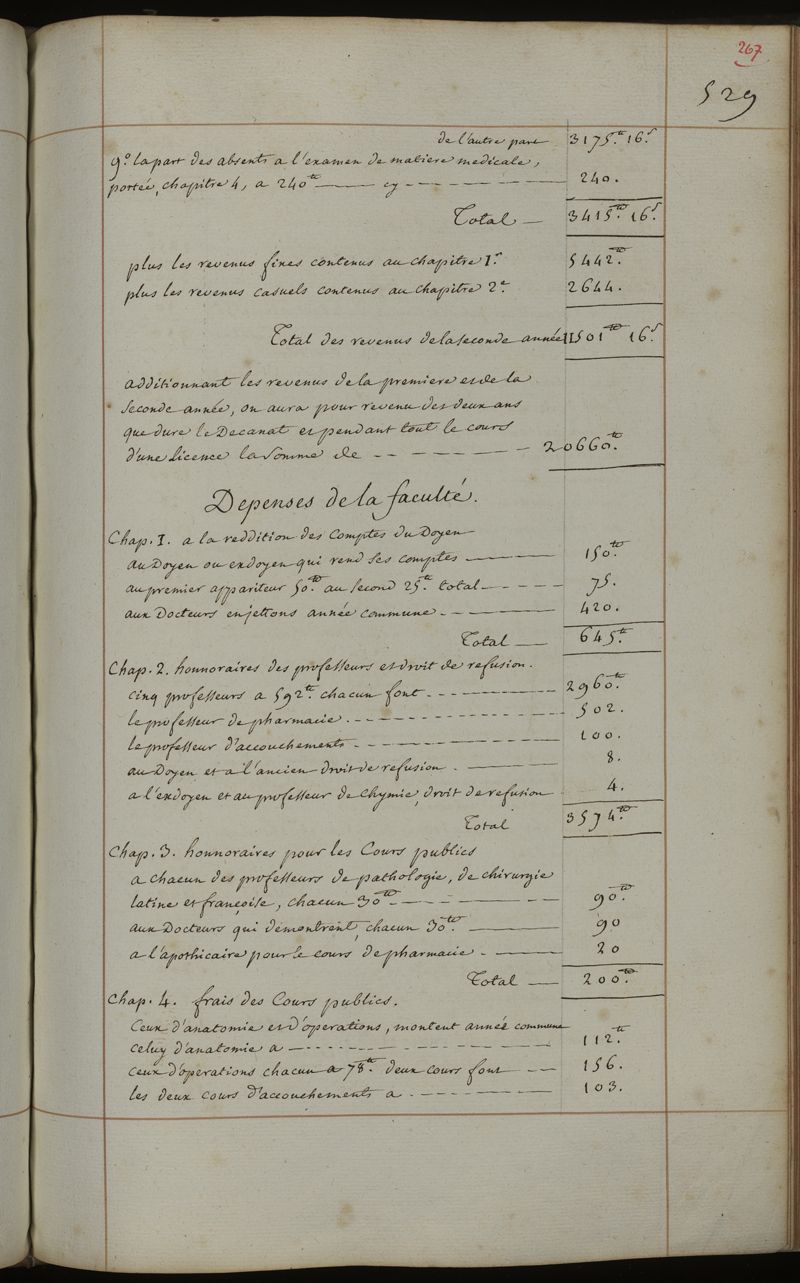 267
529
de l'autre part 3175.tt 16.s
9.o la part des absents a l'examen de matiere medicale,
portée, chapitre 4, a 240tt cy 240.
Total 3415.tt 16.s
plus les revenus fixes contenus au chapitre 1.r 5442.tt
plus les revenus casuels contenus au chapitre 2.e 2644.
Total des revenus de la seconde année 11501tt 16.s
additionnant les revenus de la premiere et de la
seconde année, on aura pour revenu des deux ans
que dure le Decanat et pendant tout le cours
d'une Licence la somme de 20660.tt
Depenses de la faculté.
Chap. 1. a la reddition des Comptes du Doyen
au Doyen ou exdoyen qui rend ses comptes 150.tt
au premier appariteur 50.tt au second 25.tt total 75.
aux Docteurs en jettons année commune 420.
Total 645.tt
Chap. 2. honnoraires des professeurs et droit de refusion.
cinq professeurs a 592.tt chacun font 2960.tt
le professeur de pharmacie 502.
le professeur d'accouchements 100.
au Doyen et a l'ancien droit de refusion 8.
a l'exdoyen et au professeur de Chymie, droit de refusion 4.
Total 3574.tt
Chap. 3. honnoraires pour les Cours publics
a chacun des professeurs de pathologie, de chirurgie
latine et françoise, chacun 30.tt 90.tt
aux Docteurs qui démontrent, chacun 30.tt 90
a l'apothicaire pour le cours de pharmacie 20
Total 200.tt
Chap. 4. frais des Cours publics.
Ceux d'anatomie et d'operations, montent année commune
celuy d'anatomie a 112.tt
ceux d'operations chacun a 78.tt deux cours font 156.
les deux cours d'accouchements a 103.